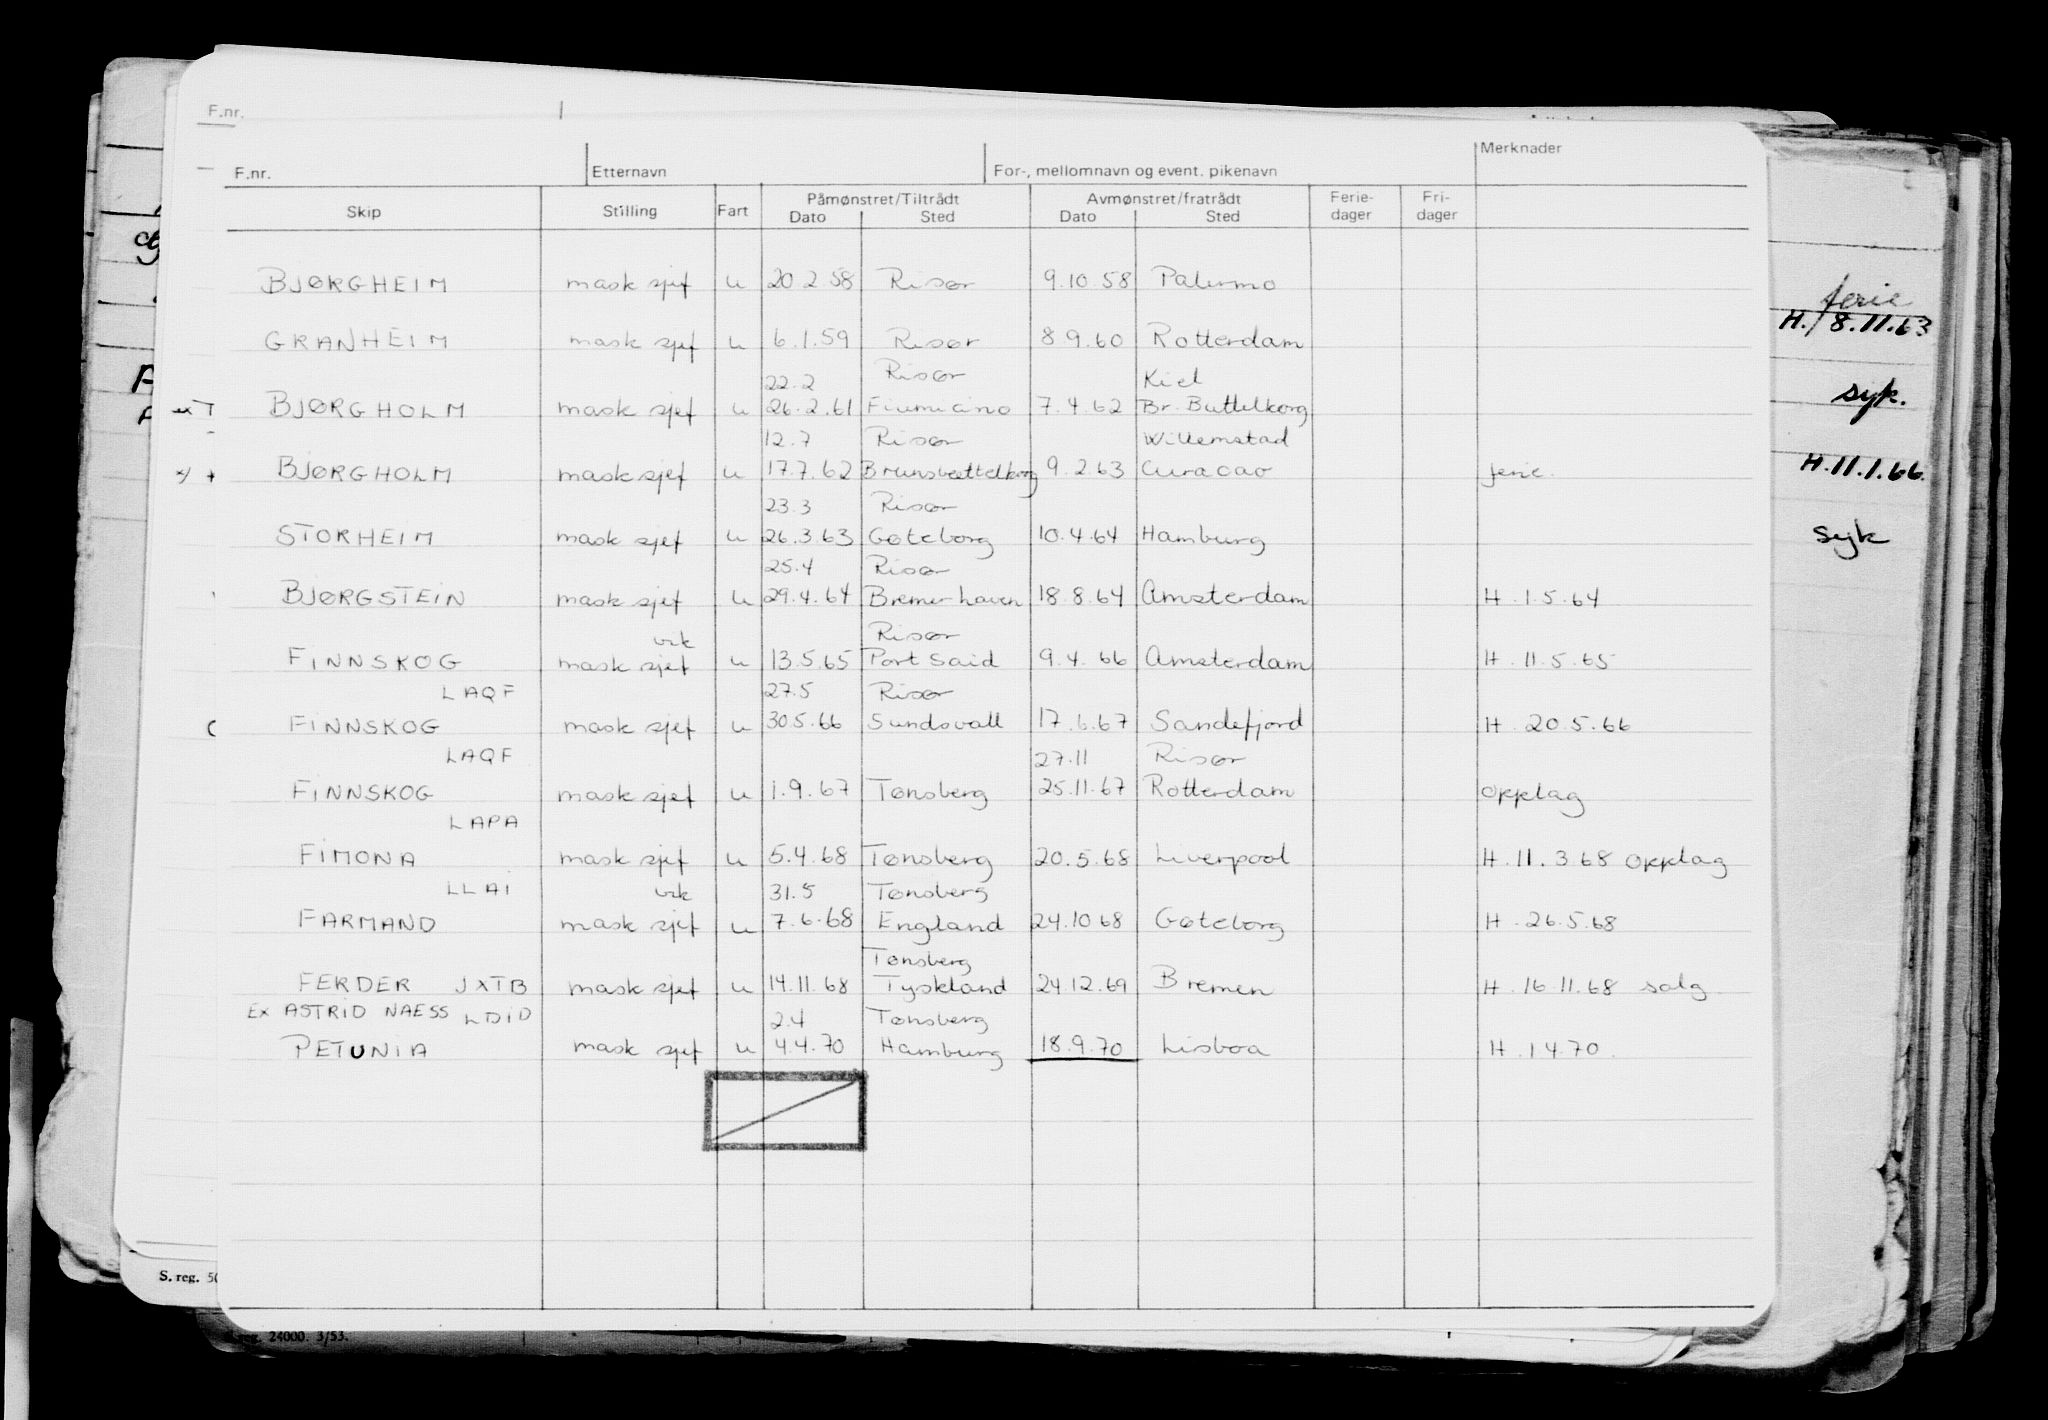 F.nr.
F.nr. Etternavn For-, mellomnavn og event. pikenavn Merknader
Skip Stilling Fart Påmønstret/Tiltrådt Avmønstret/fratrådt Ferie- Fri-
Dato Sted Dato Sted dager dager
BJØRGHEIM mask sjef u 20 2 58 Risør 9.10.58 Palermo
ferie
H. 8.11.63
GRANHEIM mask sjef u 6.1.59 Risør 8 9.60 Rotterdam
22.2 Risør Kiel
BJØRGHOLM mask sjef u 26.2.61 Fiumicino 7.4.62 Br. Buttelkorg
syk.
12.7 Risør Willemstad
BJØRGHOLM mask sjef u 17.7.62 Brunsbuttelkorg 9.2.63 Curacao ferie.
H.11.1.66.
23.3 Risør
STORHEIM mask sjef u 26.3.63 Gøteborg 10.4.64 Hamburg
syk
25.4 Risør
BJØRGSTEIN mask sjef u 29.4.64 Bremerhaven 18.8.64 Amsterdam H.1.5.64
vik Risør
FINNSKOG mask sjef u 13.5.65 Port Said 9.4.66 Amsterdam H.11.5.65
LAQF 27.5 Risør
FINNSKOG mask sjef u 30 5.66 Sundsvall 17.6.67 Sandefjord H.20.5.66
LAQF 27.11 Risør
FINNSKOG mask sjef u 1.9.67 Tønsberg 25.11.67 Rotterdam opplag
LAPA
FIMONA mask sjef u 5.4.68 Tønsberg 20.5.68 Liverpool H.11.3.68 opplag
LLAI vik 31.5 Tønsberg
FARMAND mask sjef u 7.6.68 England 24.10 68 Gøteborg H.26.5.68
Tønsberg
FERDER JXTB mask sjef u 14.11.68 Tyskland 24.12.69 Bremen H.16.11.68 salg.
Ex ASTRID NAESS LDID 2.4 Tønsberg
PETUNIA mask sjef u 4.4.70 Hamburg 18.9.70 Lisboa H.1.4.70.
S. reg. 50
reg. 24000. 3/53.